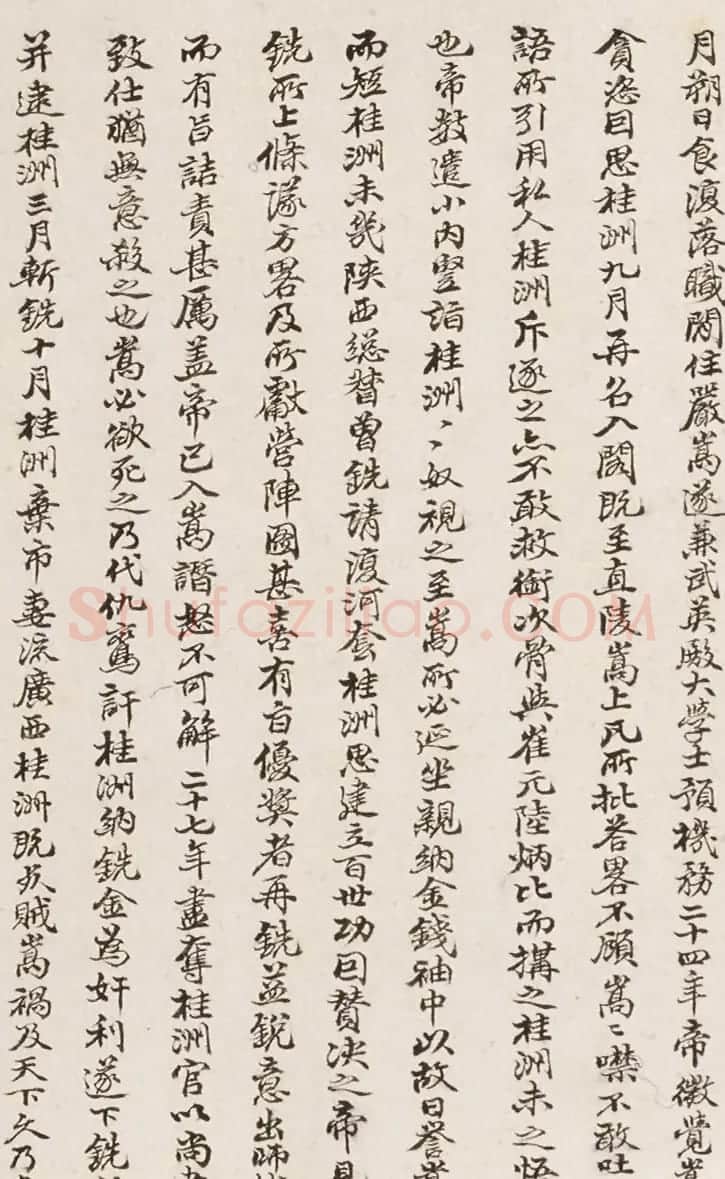 月朔日食復落職閑住嚴嵩遂兼武英殿大學士預機務二十四年帝微覺嵩
貪恣因思桂洲九月再召入閣既至直陵嵩上凡所批荅畧不顧嵩〻噤不敢吐
語所引用私人桂洲斥逐之亦不敢救銜次骨與崔元陸炳比而搆之桂洲未之悟
也帝數遣小内豎詣桂洲〻奴視之至嵩所必延坐親納金錢袖中以故日譽嵩
而短桂洲未幾陝西総督曾銑請復河套桂洲思建立百世功因賛决之帝見
銑所上條議方畧及所獻營陣圖甚喜有旨優奬者再銑益銳意出師
而有旨詰責甚厲盖帝已入嵩譖怒不可解二十七年盡奪桂洲官以尚
致仕猶無意殺之也嵩必欲死之乃代仇鸞訐桂洲納銑金為奸利遂下銑
并逮桂洲三月斬銑十月桂洲棄市妻流廣西桂洲既死賊嵩禍及天下久乃
Shufaziliao.COM